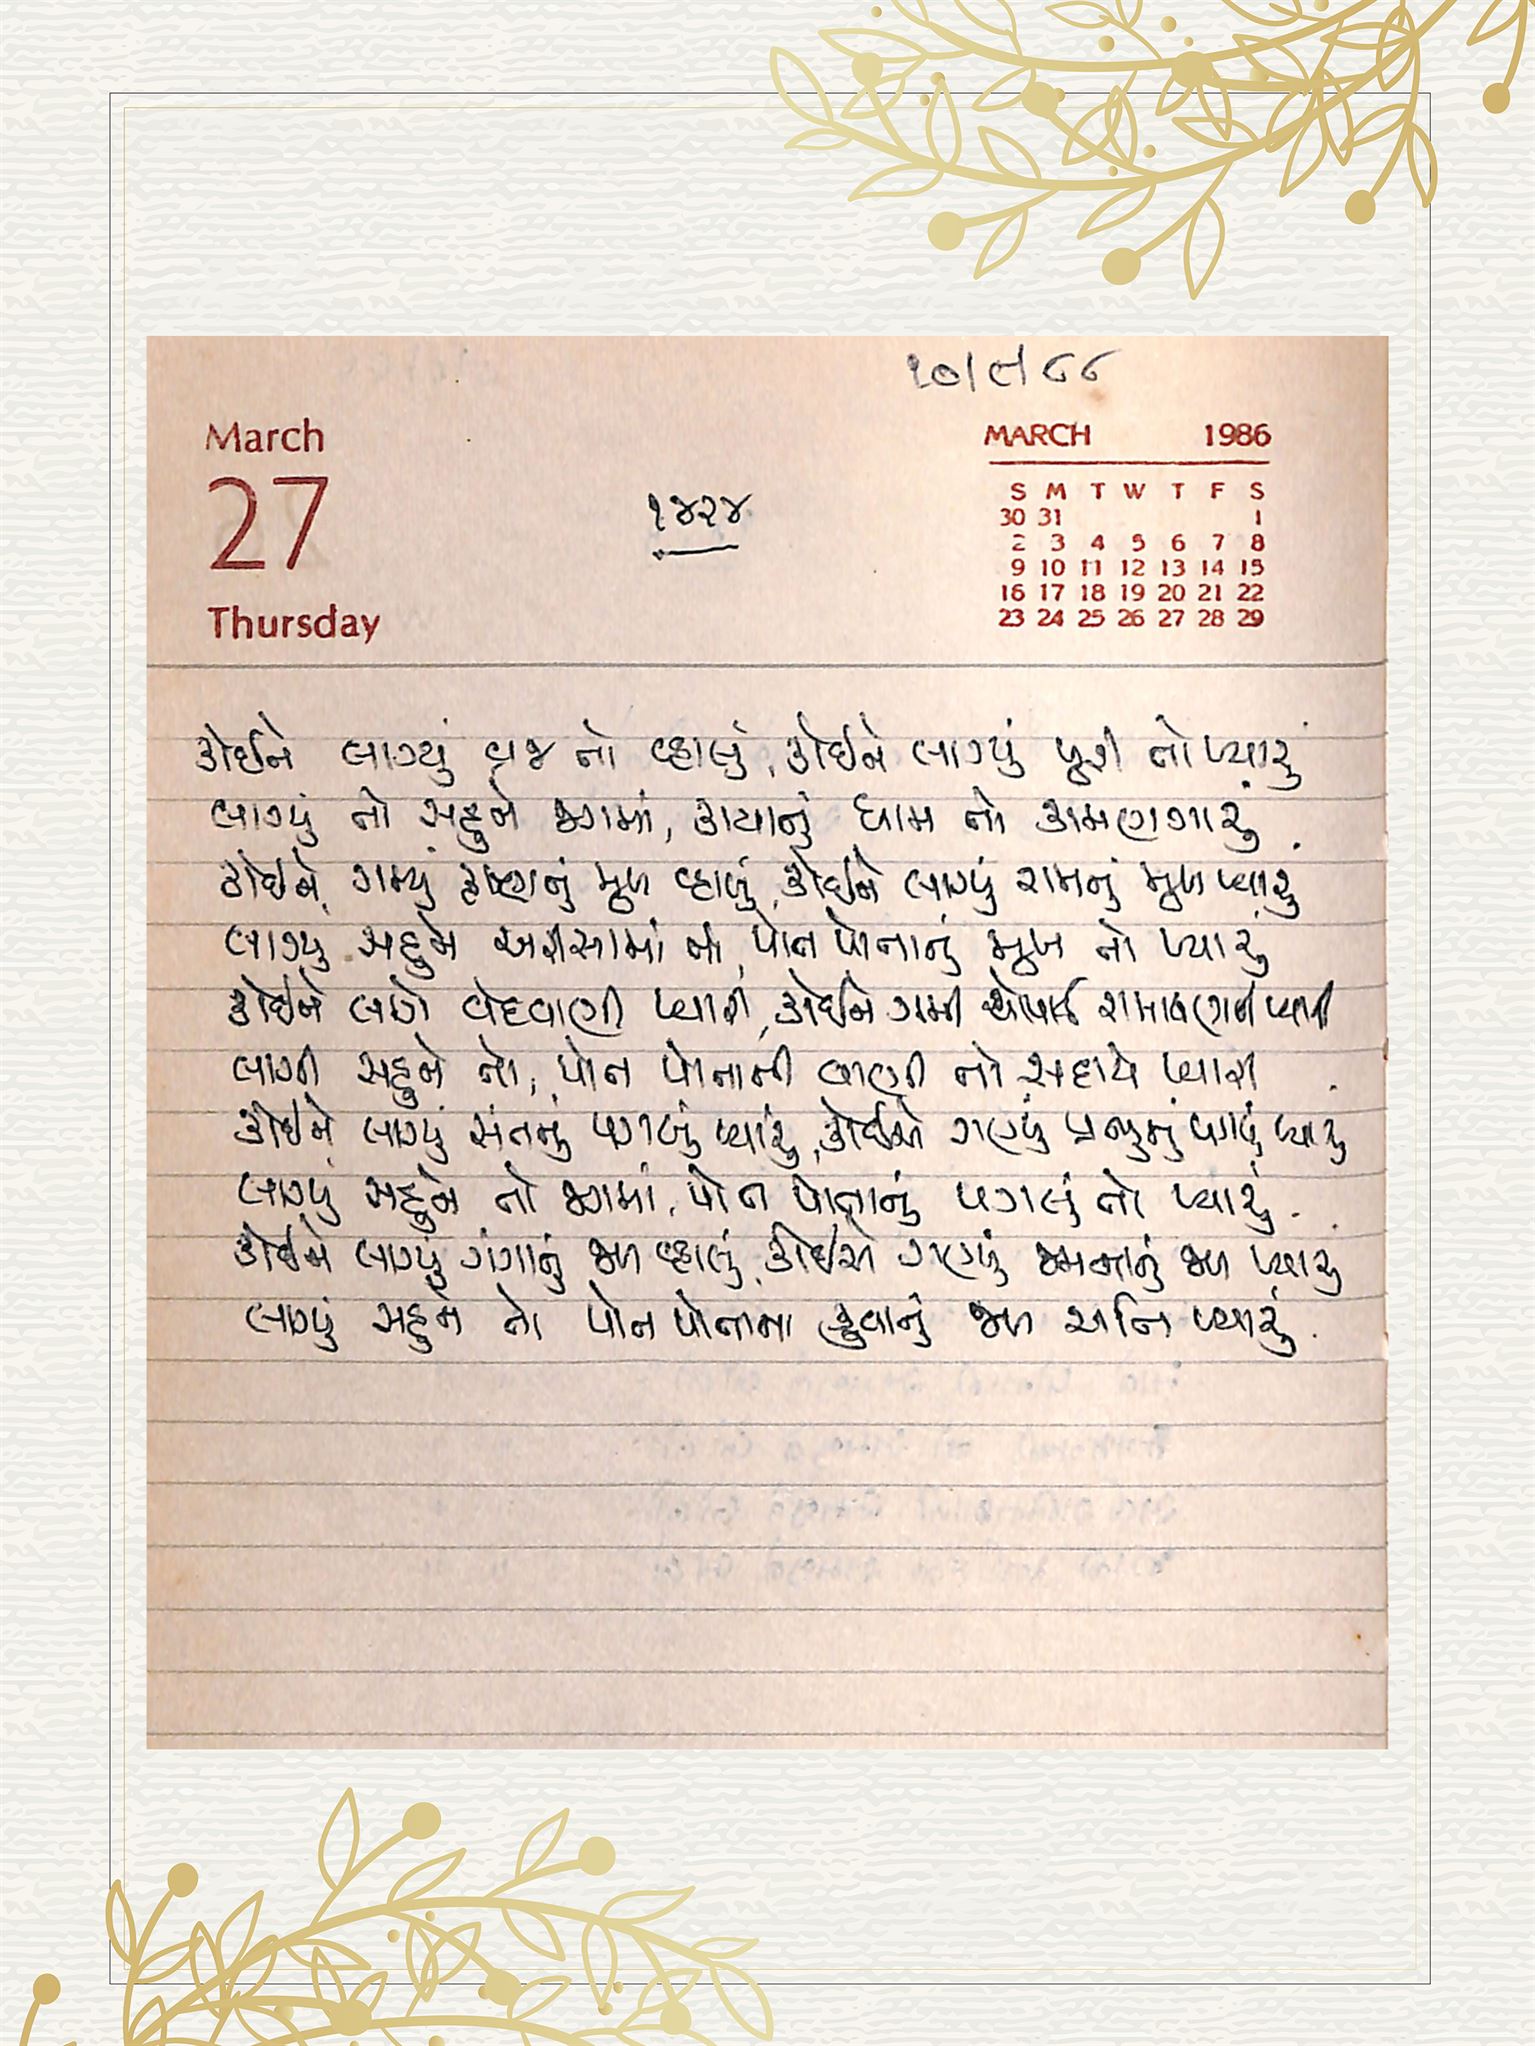 ૧૦/૯/૮૮
March
27
Thursday
૧૪૨૪
MARCH 1986
S M T W T F S
30 31 1
2 3 4 5 6 7 8
9 10 11 12 13 14 15
16 17 18 19 20 21 22
23 24 25 26 27 28 29
કોઈને લાગ્યું વ્રજ તો વ્હાલું, કોઈને લાગ્યું પૂરી તો પ્યારું
લાગ્યું તો સહુને જગમાં, કાયાનું ધામ તો કામણગારું.
કોઈને ગમ્યું કૃષ્ણનું મુખ વ્હાલું, કોઈને લાગ્યું રામનું મુખ પ્યારું
લાગ્યું સહુને અરીસામાં તો, પોત પોતાનું મુખ તો પ્યારું
કોઈને લાગી વેદવાણી પ્યારી, કોઈને ગમી ચોપાઈ રામાયણની પ્યારી
લાગી સહુને તો, પોત પોતાની વાણી તો સદાયે પ્યારી.
કોઈને લાગ્યું સંતનું પગલું પ્યારું, કોઈએ ગણ્યું પ્રભુનું પગલું પ્યારું
લાગ્યું સહુને તો જગમાં, પોત પોતાનું પગલું તો પ્યારું.
કોઈને લાગ્યું ગંગાનું જળ વ્હાલું, કોઈએ ગણ્યું જમનાનું જળ પ્યારું
લાગ્યું સહુને તો પોત પોતાના કુવાનું જળ અતિ પ્યારું.